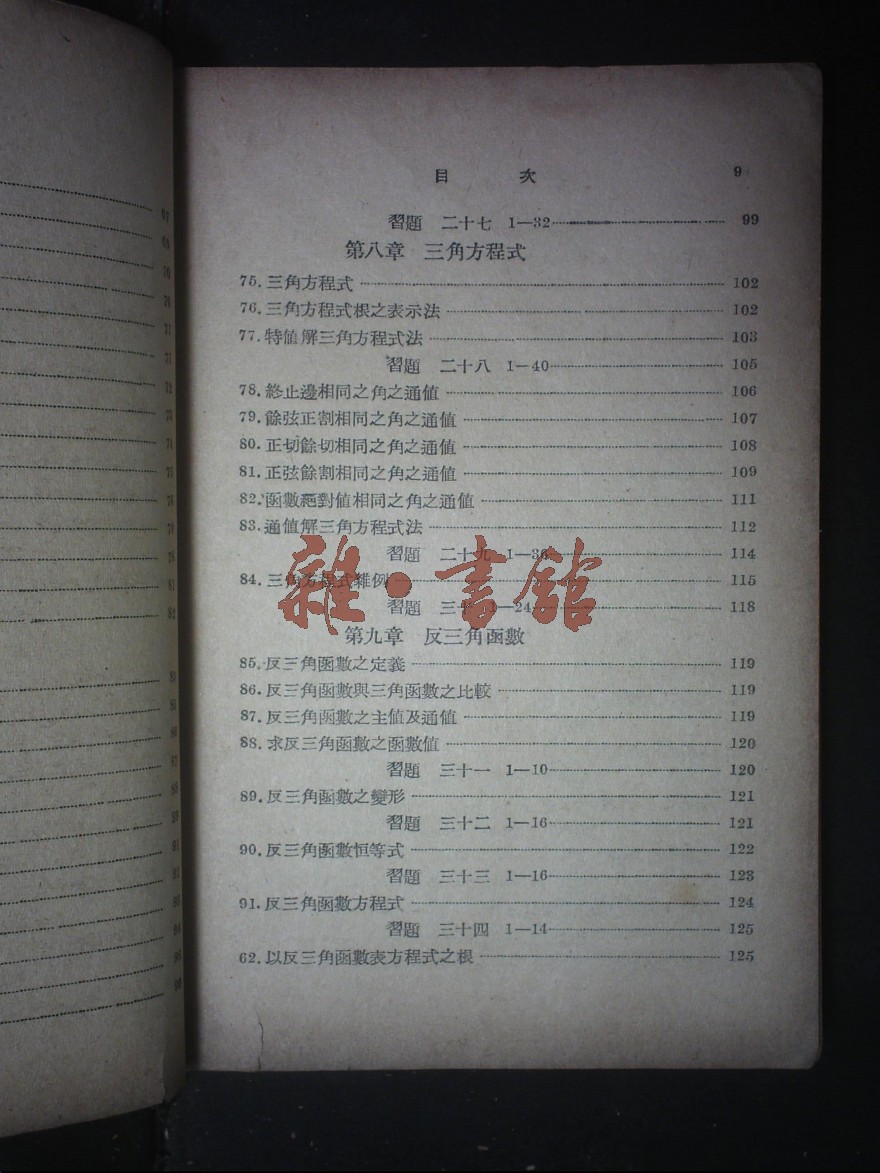 目 次 9
習題 二十七 1—32 99
第八章 三角方程式
75. 三角方程式 102
76. 三角方程式根之表示法 102
77. 特值解三角方程式法 103
習題 二十八 1—40 105
78. 終止邊相同之角之通值 106
79. 餘弦正割相同之角之通值 107
80. 正切餘切相同之角之通值 108
81. 正弦餘割相同之角之通值 109
82. 函數絕對值相同之角之通值 111
83. 通值解三角方程式法 112
習題 二十九 1—36 114
84. 三角方程式雜例 115
習題 三十 1—24 118
雜·書館
第九章 反三角函數
85. 反三角函數之定義 119
86. 反三角函數與三角函數之比較 119
87. 反三角函數之主值及通值 119
88. 求反三角函數之函數值 120
習題 三十一 1—10 120
89. 反三角函數之變形 121
習題 三十二 1—16 121
90. 反三角函數恒等式 122
習題 三十三 1—16 123
91. 反三角函數方程式 124
習題 三十四 1—14 125
62. 以反三角函數表方程式之根 125